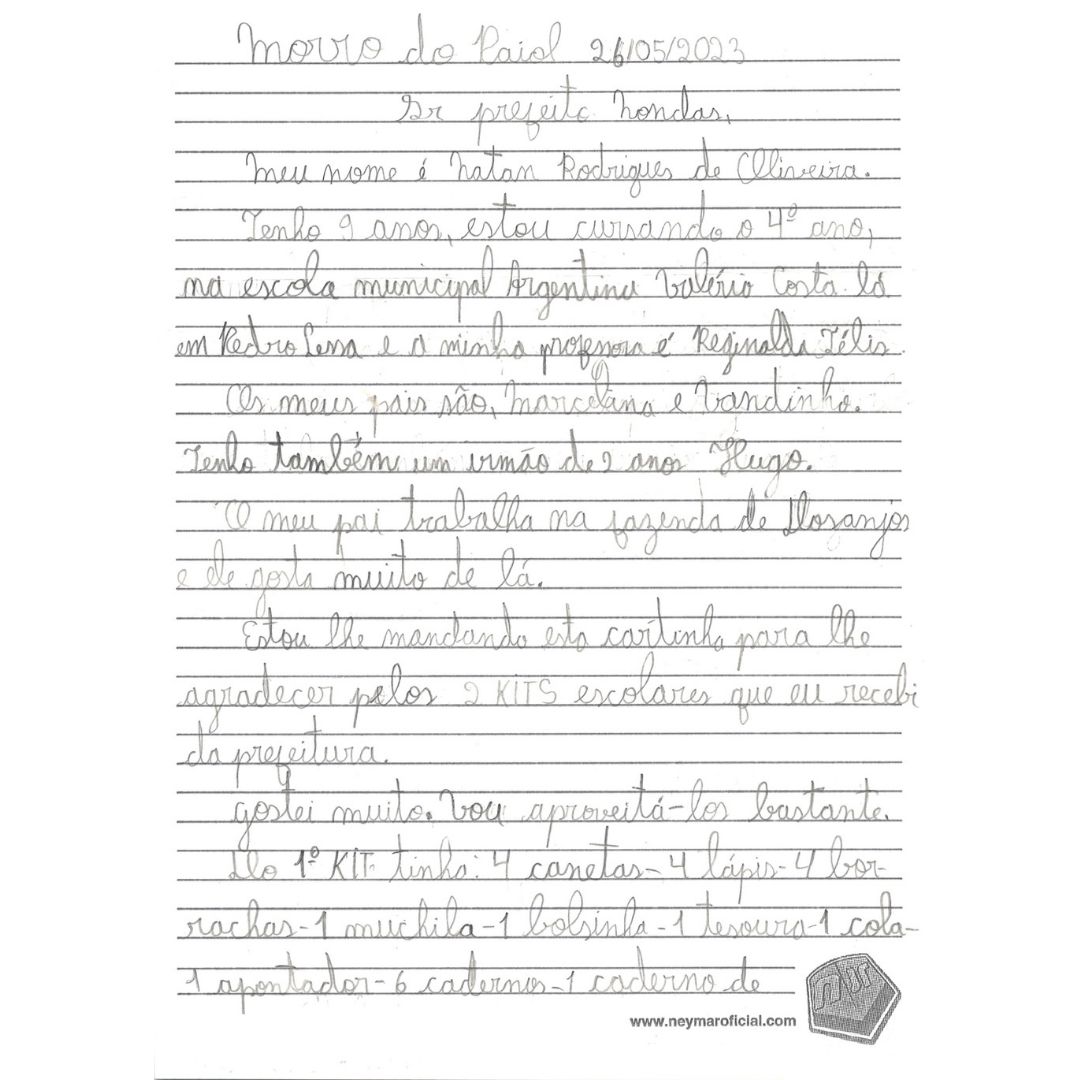 Morro do Paiol 26/05/2023
Sr prefeito Nondas,
Meu nome é Natan Rodrigues de Oliveira.
Tenho 9 anos, estou cursando o 4º ano,
na escola municipal Argentina Valério Costa lá
em Pedro Lessa e a minha professora é Reginalda Télis.
Os meus pais são, Marcelana e Vandinho.
Tenho também um irmão de 2 anos Hugo.
O meu pai trabalha na fazenda de
e ele gosta muito de lá.
Estou lhe mandando esta cartinha para lhe
agradecer pelos 2 KITS escolares que eu recebi
da prefeitura.
gostei muito. Vou aproveitá-los bastante.
No 1º KIT tinha: 4 canetas-4 lápis-4 bor-
rachas-1 muchila-1 bolsinha-1 tesoura-1 cola-
1 apontador-6 cadernos-1 caderno de
www.neymaroficial.com